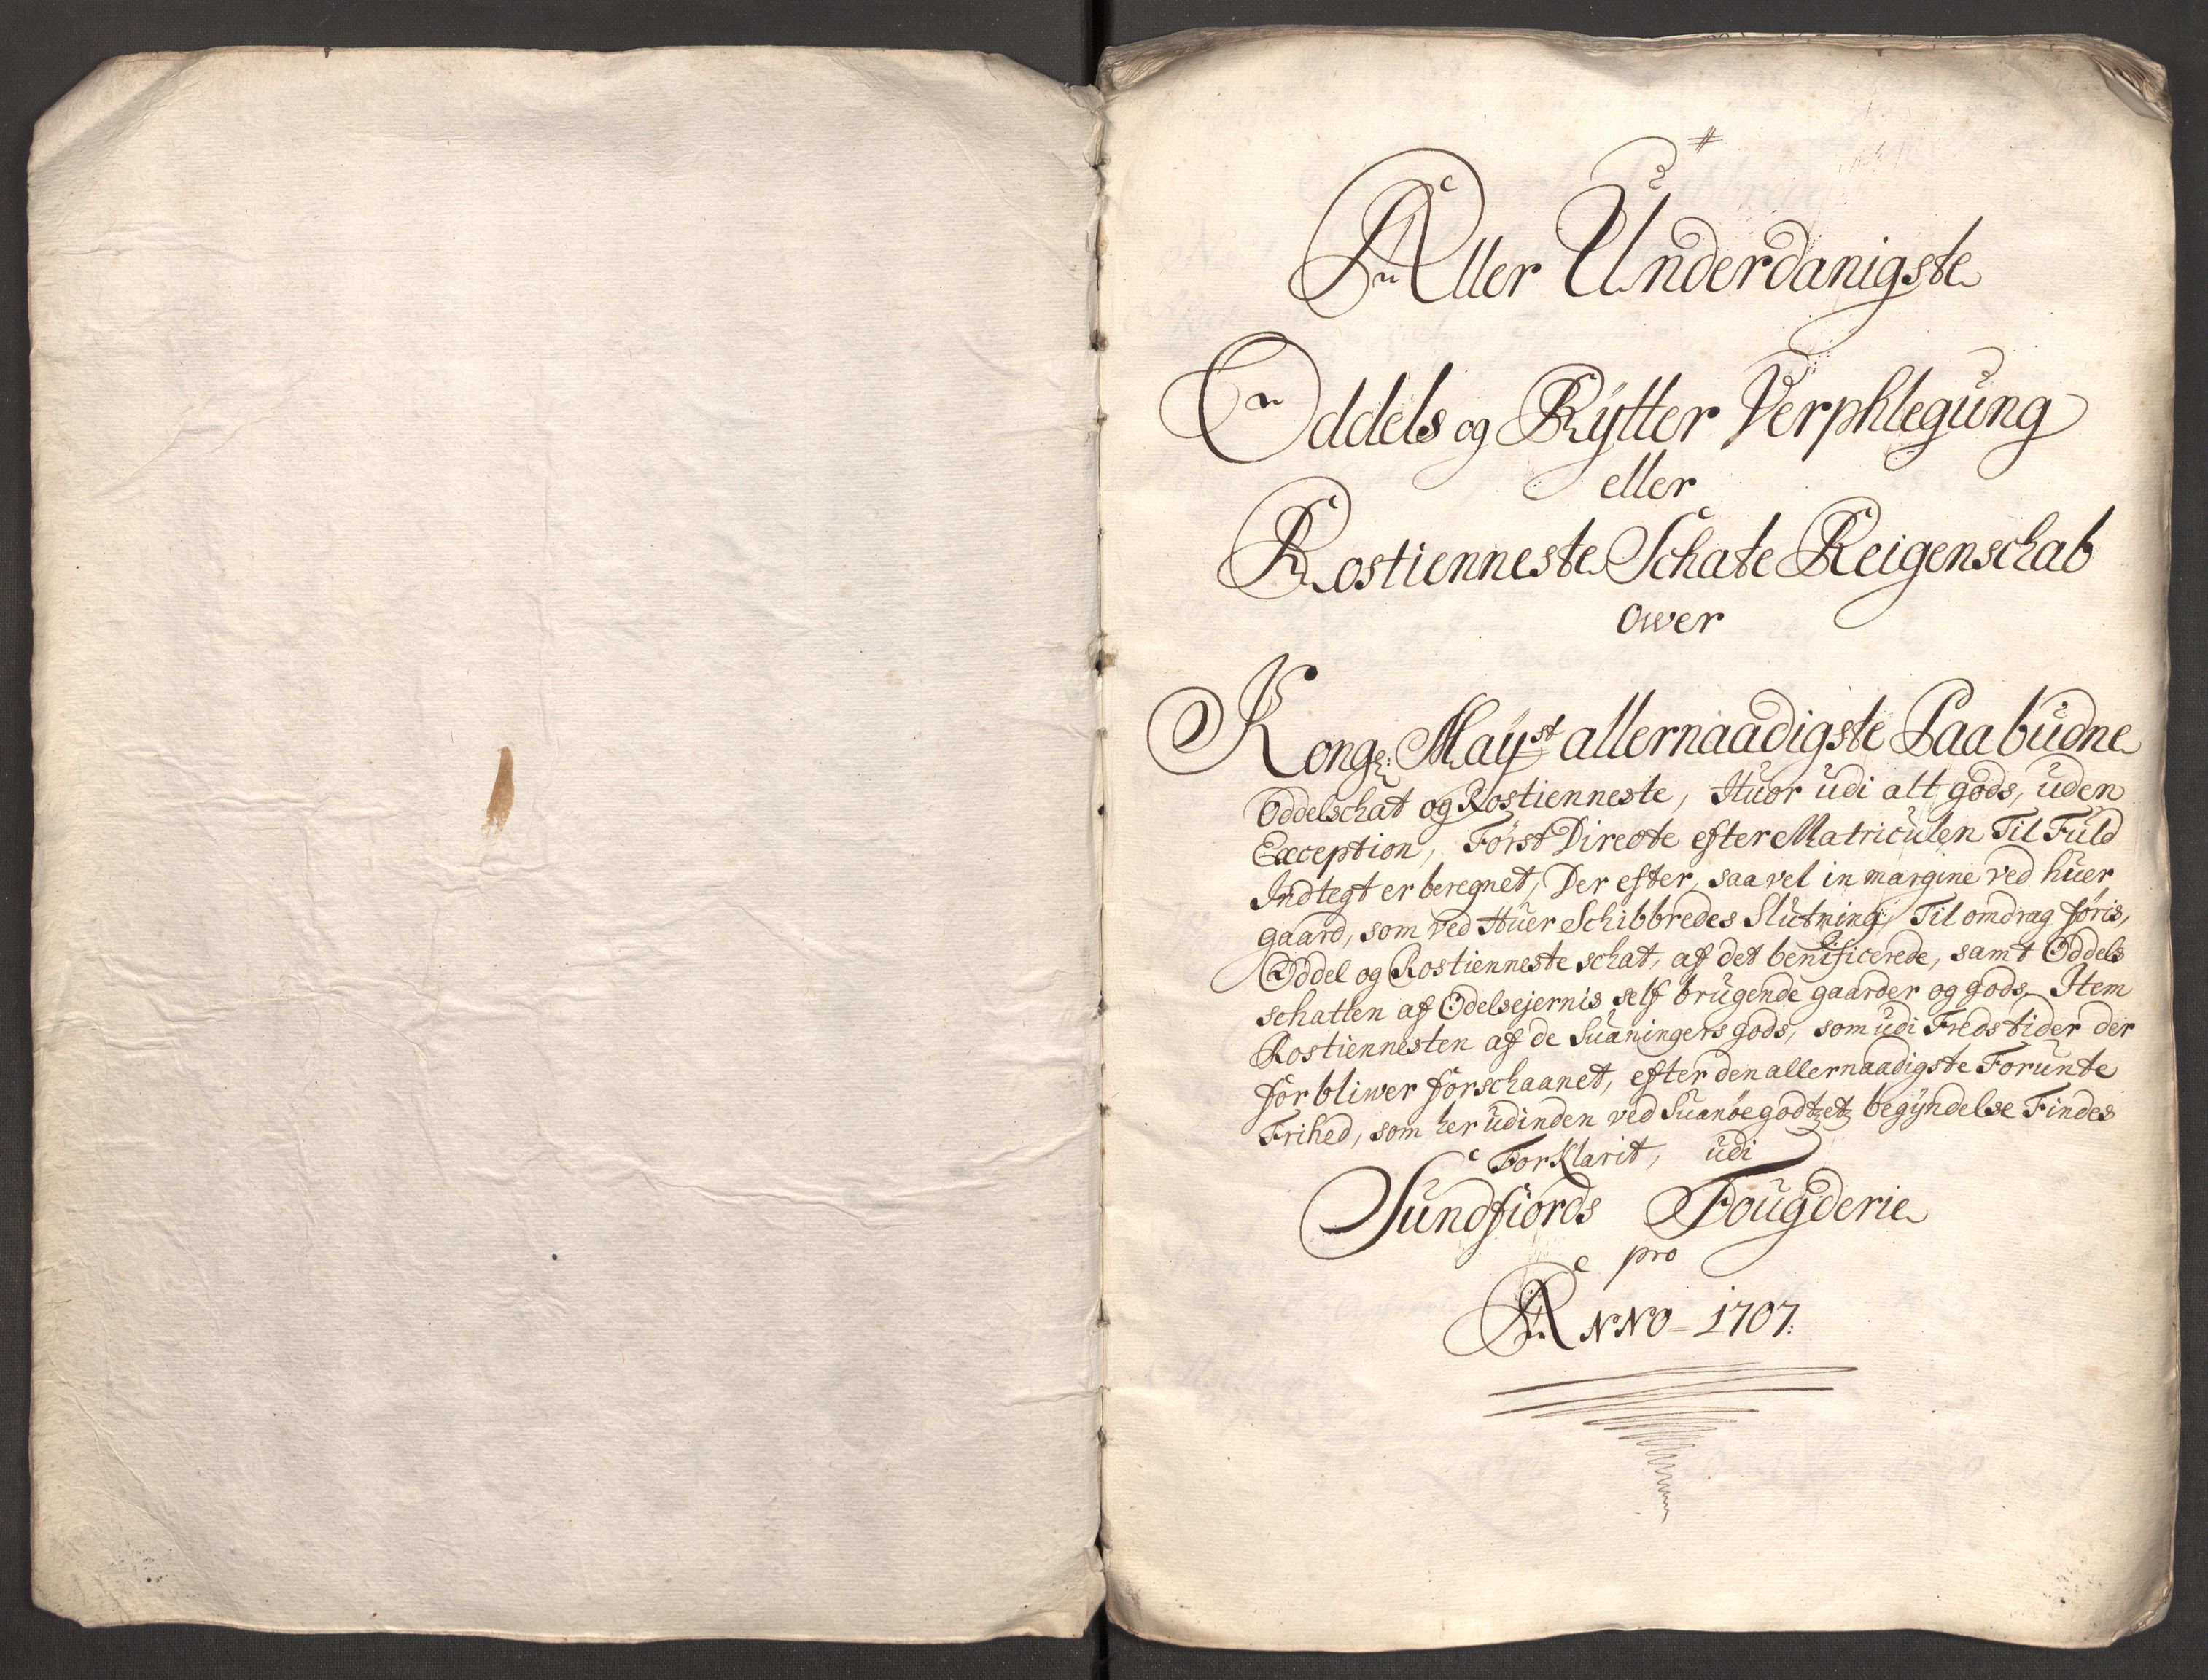 #
Aller Underdanigste
Oddels og Rÿtter Verphlegung
eller
Rostienneste Schate Reigenschab
Ower
Kong: Maÿst allernaadigste Paabudne
Oddelschat og Rostienneste, Huor udi alt gods, uden
Exception, Først Directe efter Matriculen Til Fuld
Indtegt er beregnet, Der efter, saa vel in margine ved huer
gaard, som ved Huer Schibbredes Slutning, Til omdrag føris,
Oddel og Rostienneste schat, af det benificerede, samt Oddels
schatten af Odelsejernis self brugende gaarder og gods. Item
Rostiennesten af de Suaningers gods, som udi Freds tider der
for bliwer forschaanet, efter den allernaadigste Forunte
Frihed, som her udinden ved Suanøe godtzetz begÿndelse Findes
Forklarit, udi
Sundfiords Fougderie
pro
ANNO - 1707: